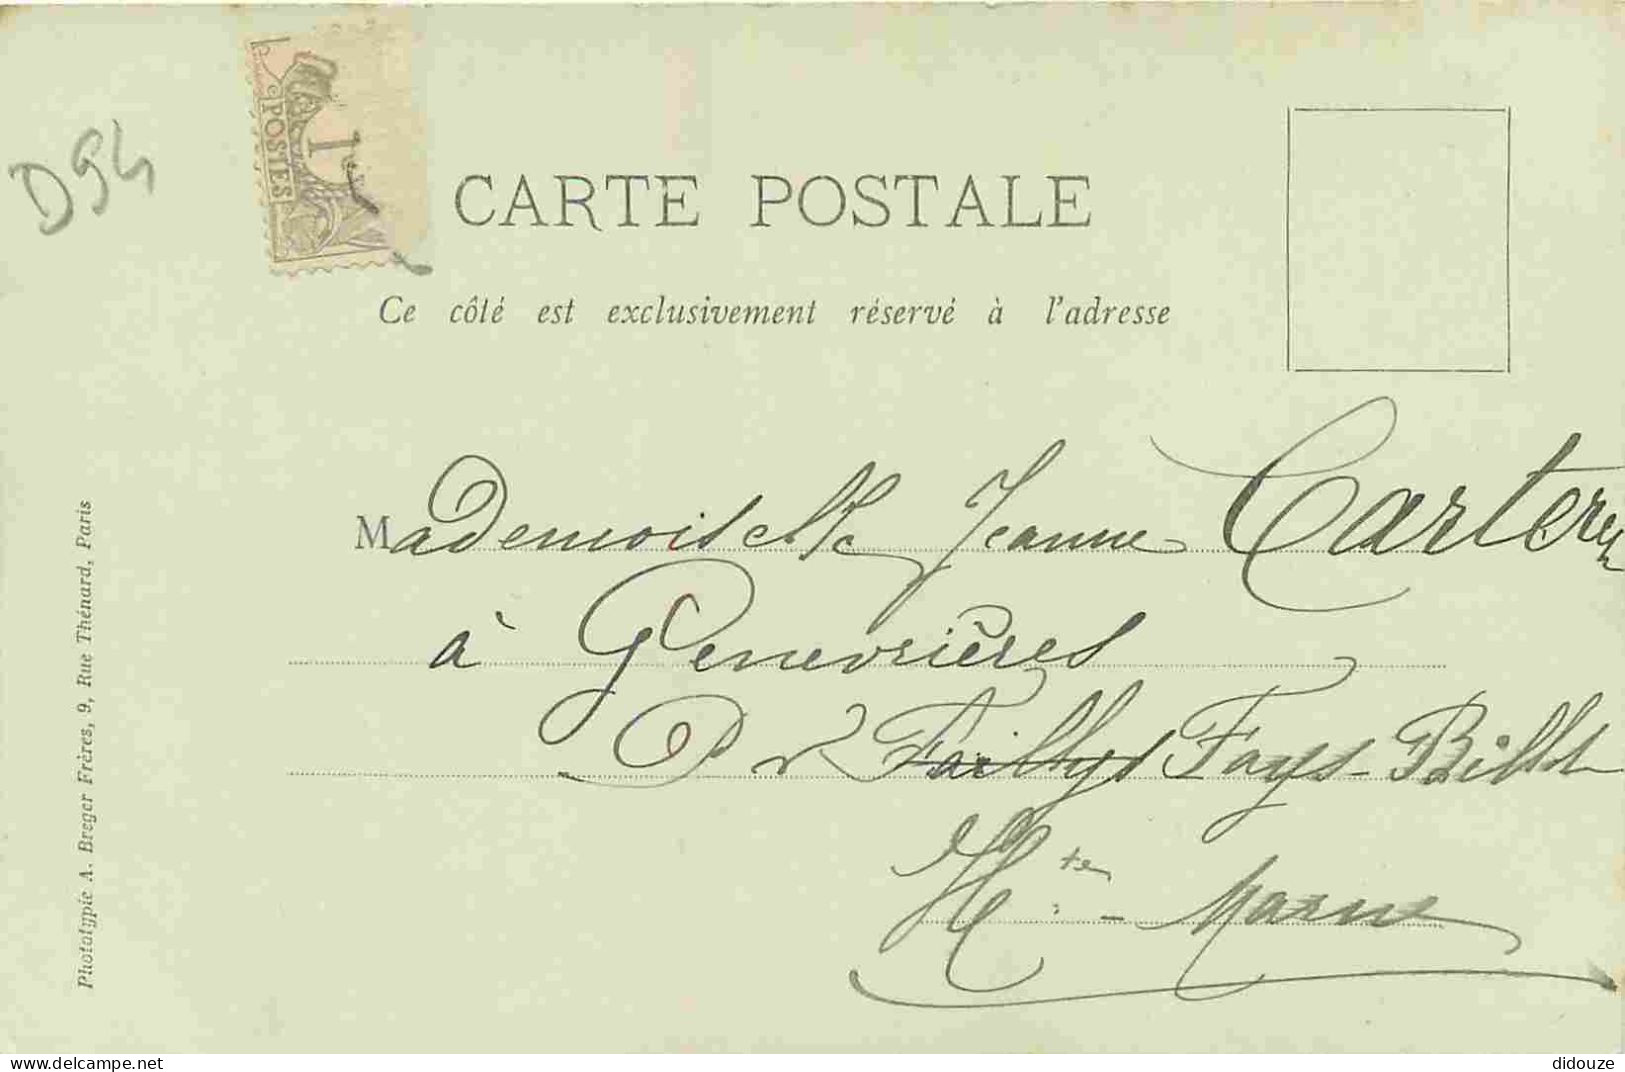 D94
POSTES
CARTE POSTALE
Ce côté est exclusivement réservé à l'adresse
Mademoiselle Jeanne
à Genevrières
Pr Failly Fays-Billot
Hte - Marne
Phototypie A. Breger Frères, 9, Rue Thénard, Paris
www.delcampe.net
didouze